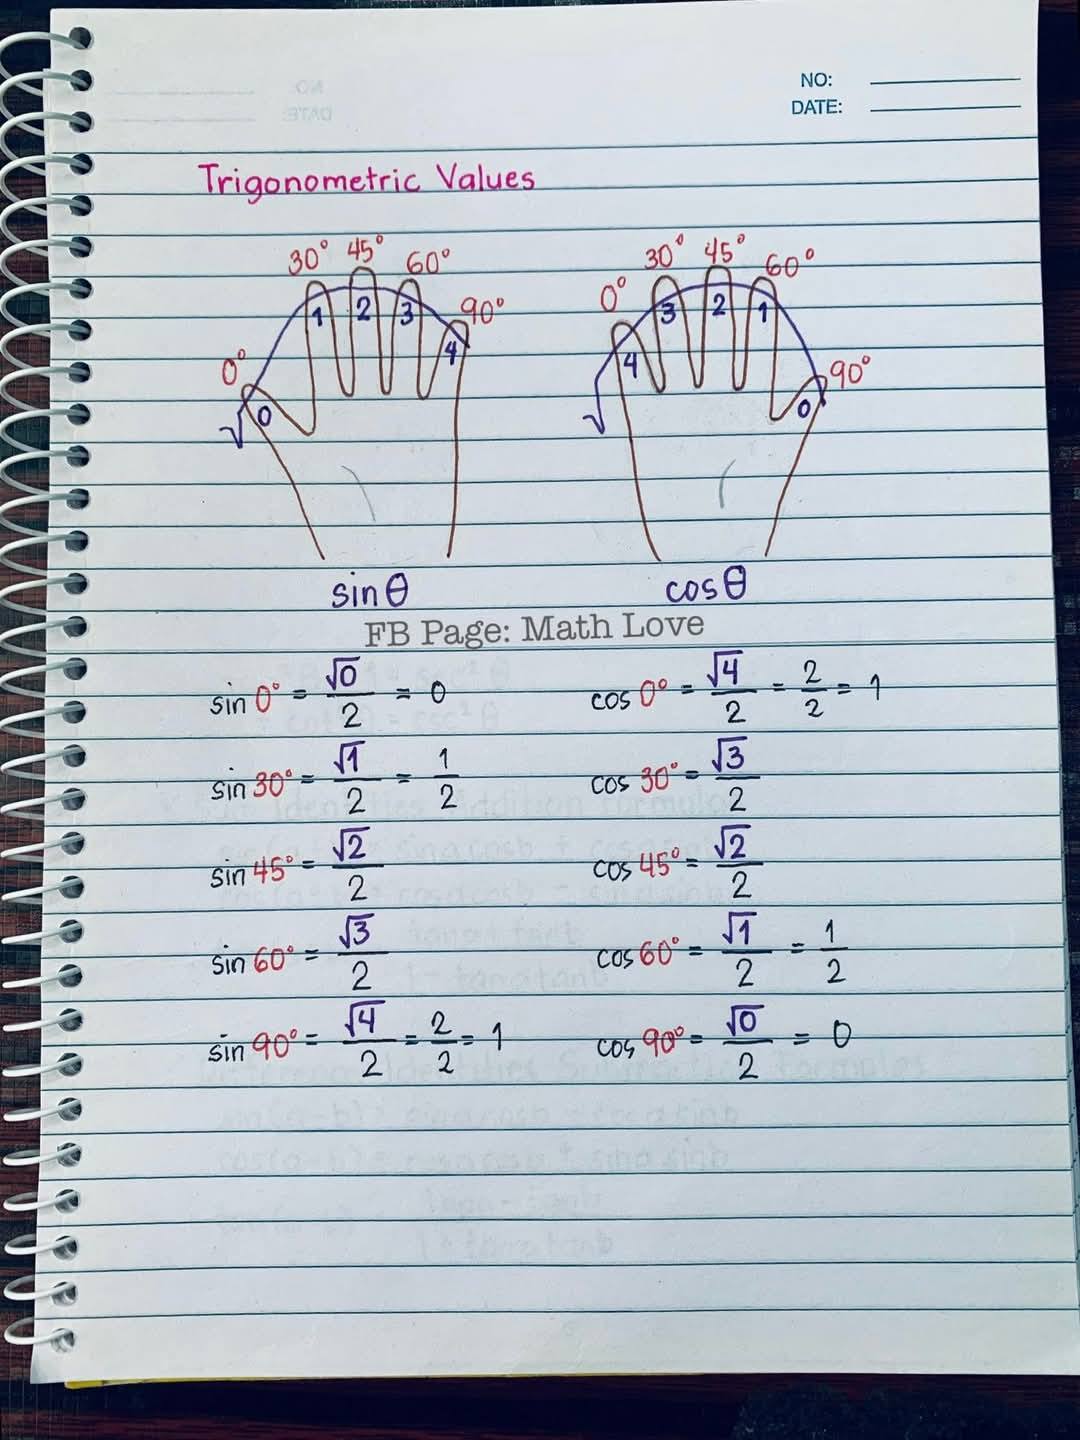 NO:
DATE:
Trigonometric Values
0° 30° 45° 60° 90°
0 1 2 3 4
√
sin θ
0° 30° 45° 60° 90°
4 3 2 1 0
√
cos θ
FB Page: Math Love
sin 0° = √0/2 = 0
cos 0° = √4/2 = 2/2 = 1
sin 30° = √1/2 = 1/2
cos 30° = √3/2
sin 45° = √2/2
cos 45° = √2/2
sin 60° = √3/2
cos 60° = √1/2 = 1/2
sin 90° = √4/2 = 2/2 = 1
cos 90° = √0/2 = 0